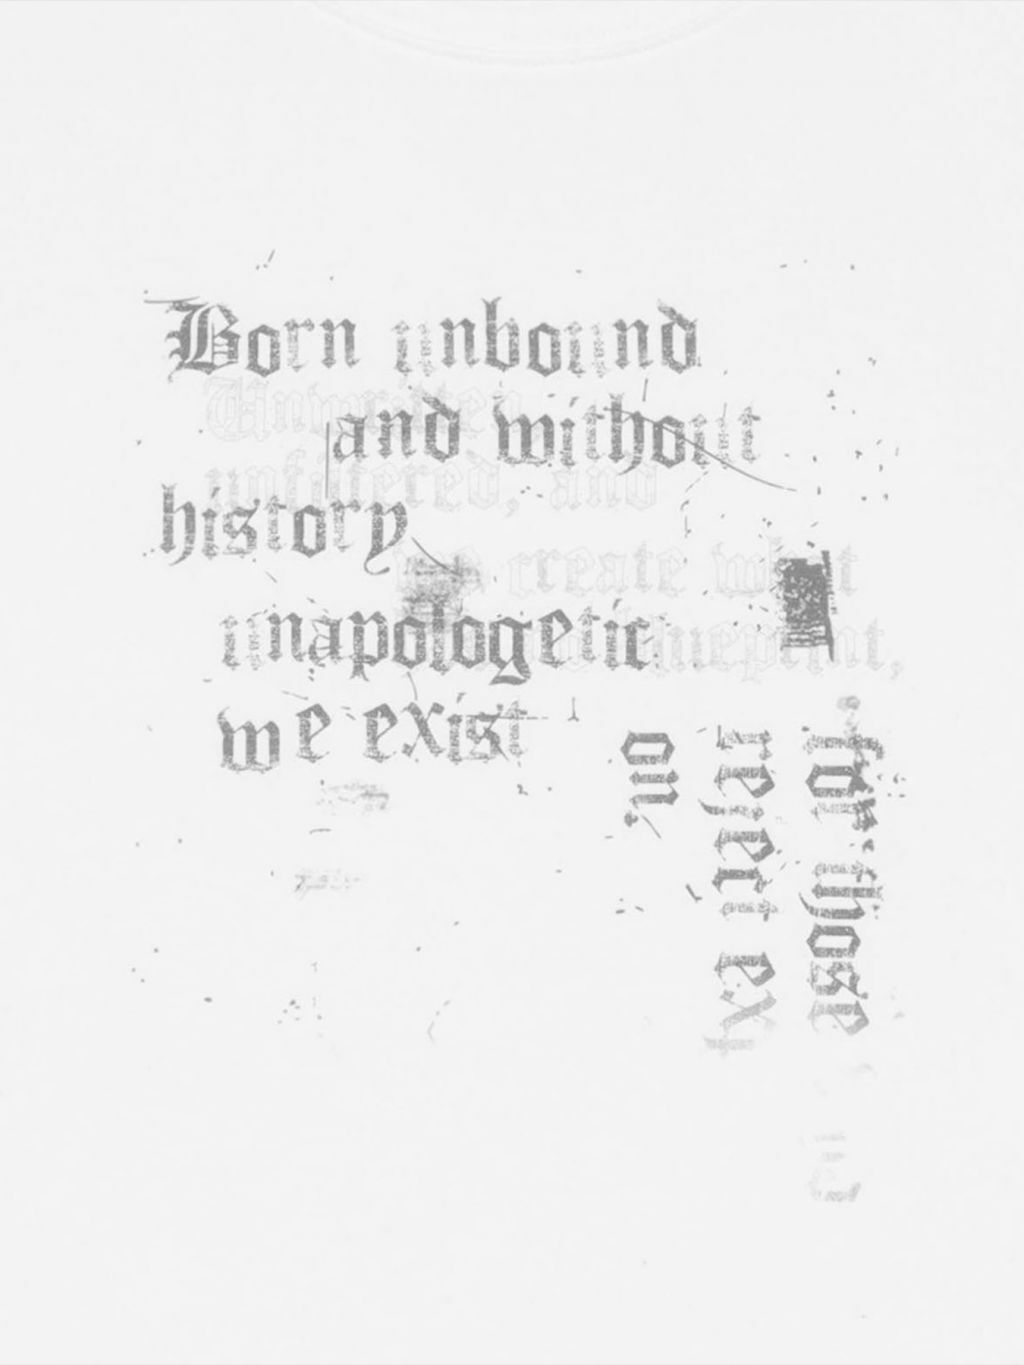 Born unbound
Unwritten,
and without
unfiltered, and
history
we create what
unapologetic
blueprint,
we exist
for those
reject ex
on.